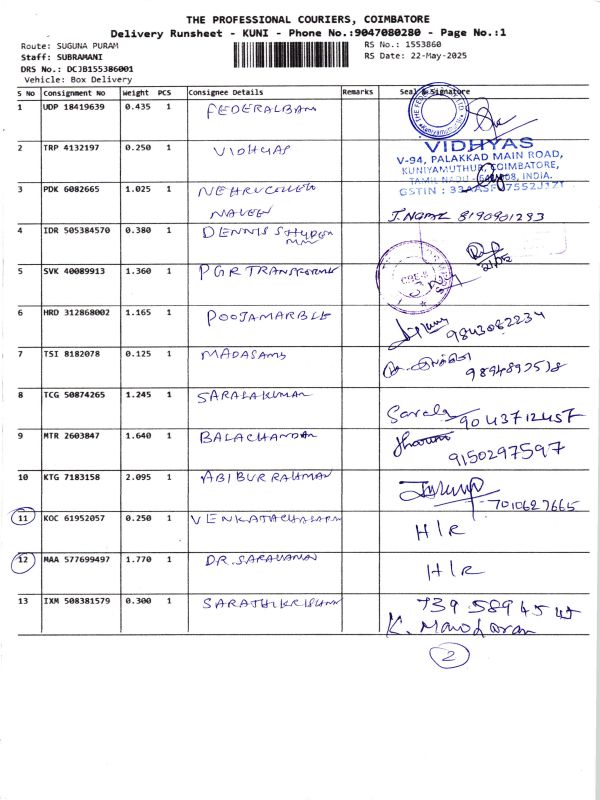 THE PROFESSIONAL COURIERS, COIMBATORE
Delivery Runsheet - KUNI - Phone No.:9047080280 - Page No.:1
Route: SUGUNA PURAM
RS No.: 1553860
Staff: SUBRAMANI
RS Date: 22-May-2025
DRS No.: DCJB155386001
Vehicle: Box Delivery
S No Consignment No Weight PCS Consignee Details Remarks Seal & Signature
1 UDP 18419639 0.435 1 FEDERALBAN
2 TRP 4132197 0.250 1 VIDHYAS
VIDHYAS
V-94, PALAKKAD MAIN ROAD,
KUNIYAMUTHUR, COIMBATORE,
TAMIL NADU - 641 008, INDIA.
GSTIN :
3 PDK 6082665 1.025 1
NAVEEN
8190901293
4 IDR 505384570 0.380 1 DENNIS
5 SVK 40089913 1.360 1 PGR TRANSFORMER
6 HRD 312868002 1.165 1 POOJAMARBLE
9843062234
7 TSI 8182078 0.125 1 MADASAMY
8 TCG 50874265 1.245 1 SARALAKUMAR
Sarala 9043712457
9 MTR 2603847 1.640 1 BALACHANDAN
9150297597
10 KTG 7183158 2.095 1 ABIBUR RAHMAN
7010627665
11 KOC 61952057 0.250 1
H/R
12 MAA 577699497 1.770 1 DR.SARAVANAN
H/R
13 IXM 508381579 0.300 1 SARATHIKRISHNAN
739 589 45 45
K. Manoharan
2